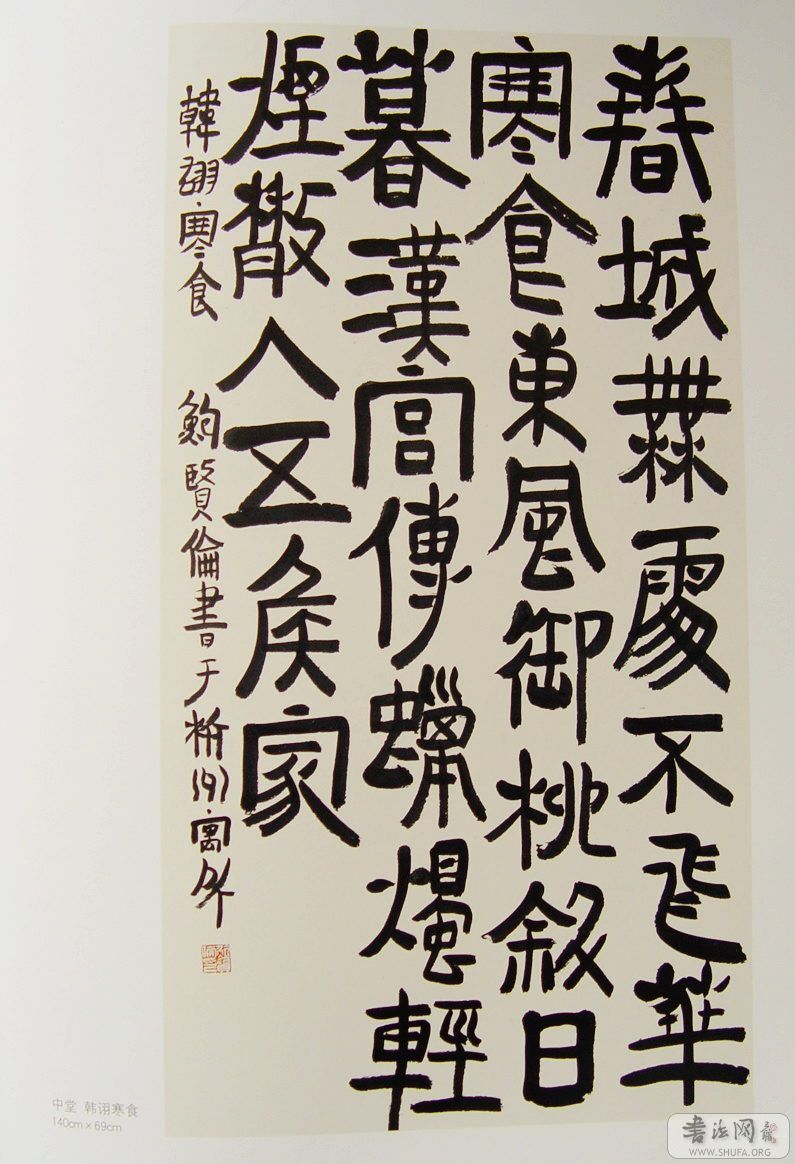 春城無處不飛華
寒食東風御柳斜日
暮漢宮傳蠟燭輕
煙散入五侯家
韓翃寒食 鮑賢倫書于
中堂 韩诩寒食
140cm×69cm
书法网
WWW.SHUFA.ORG